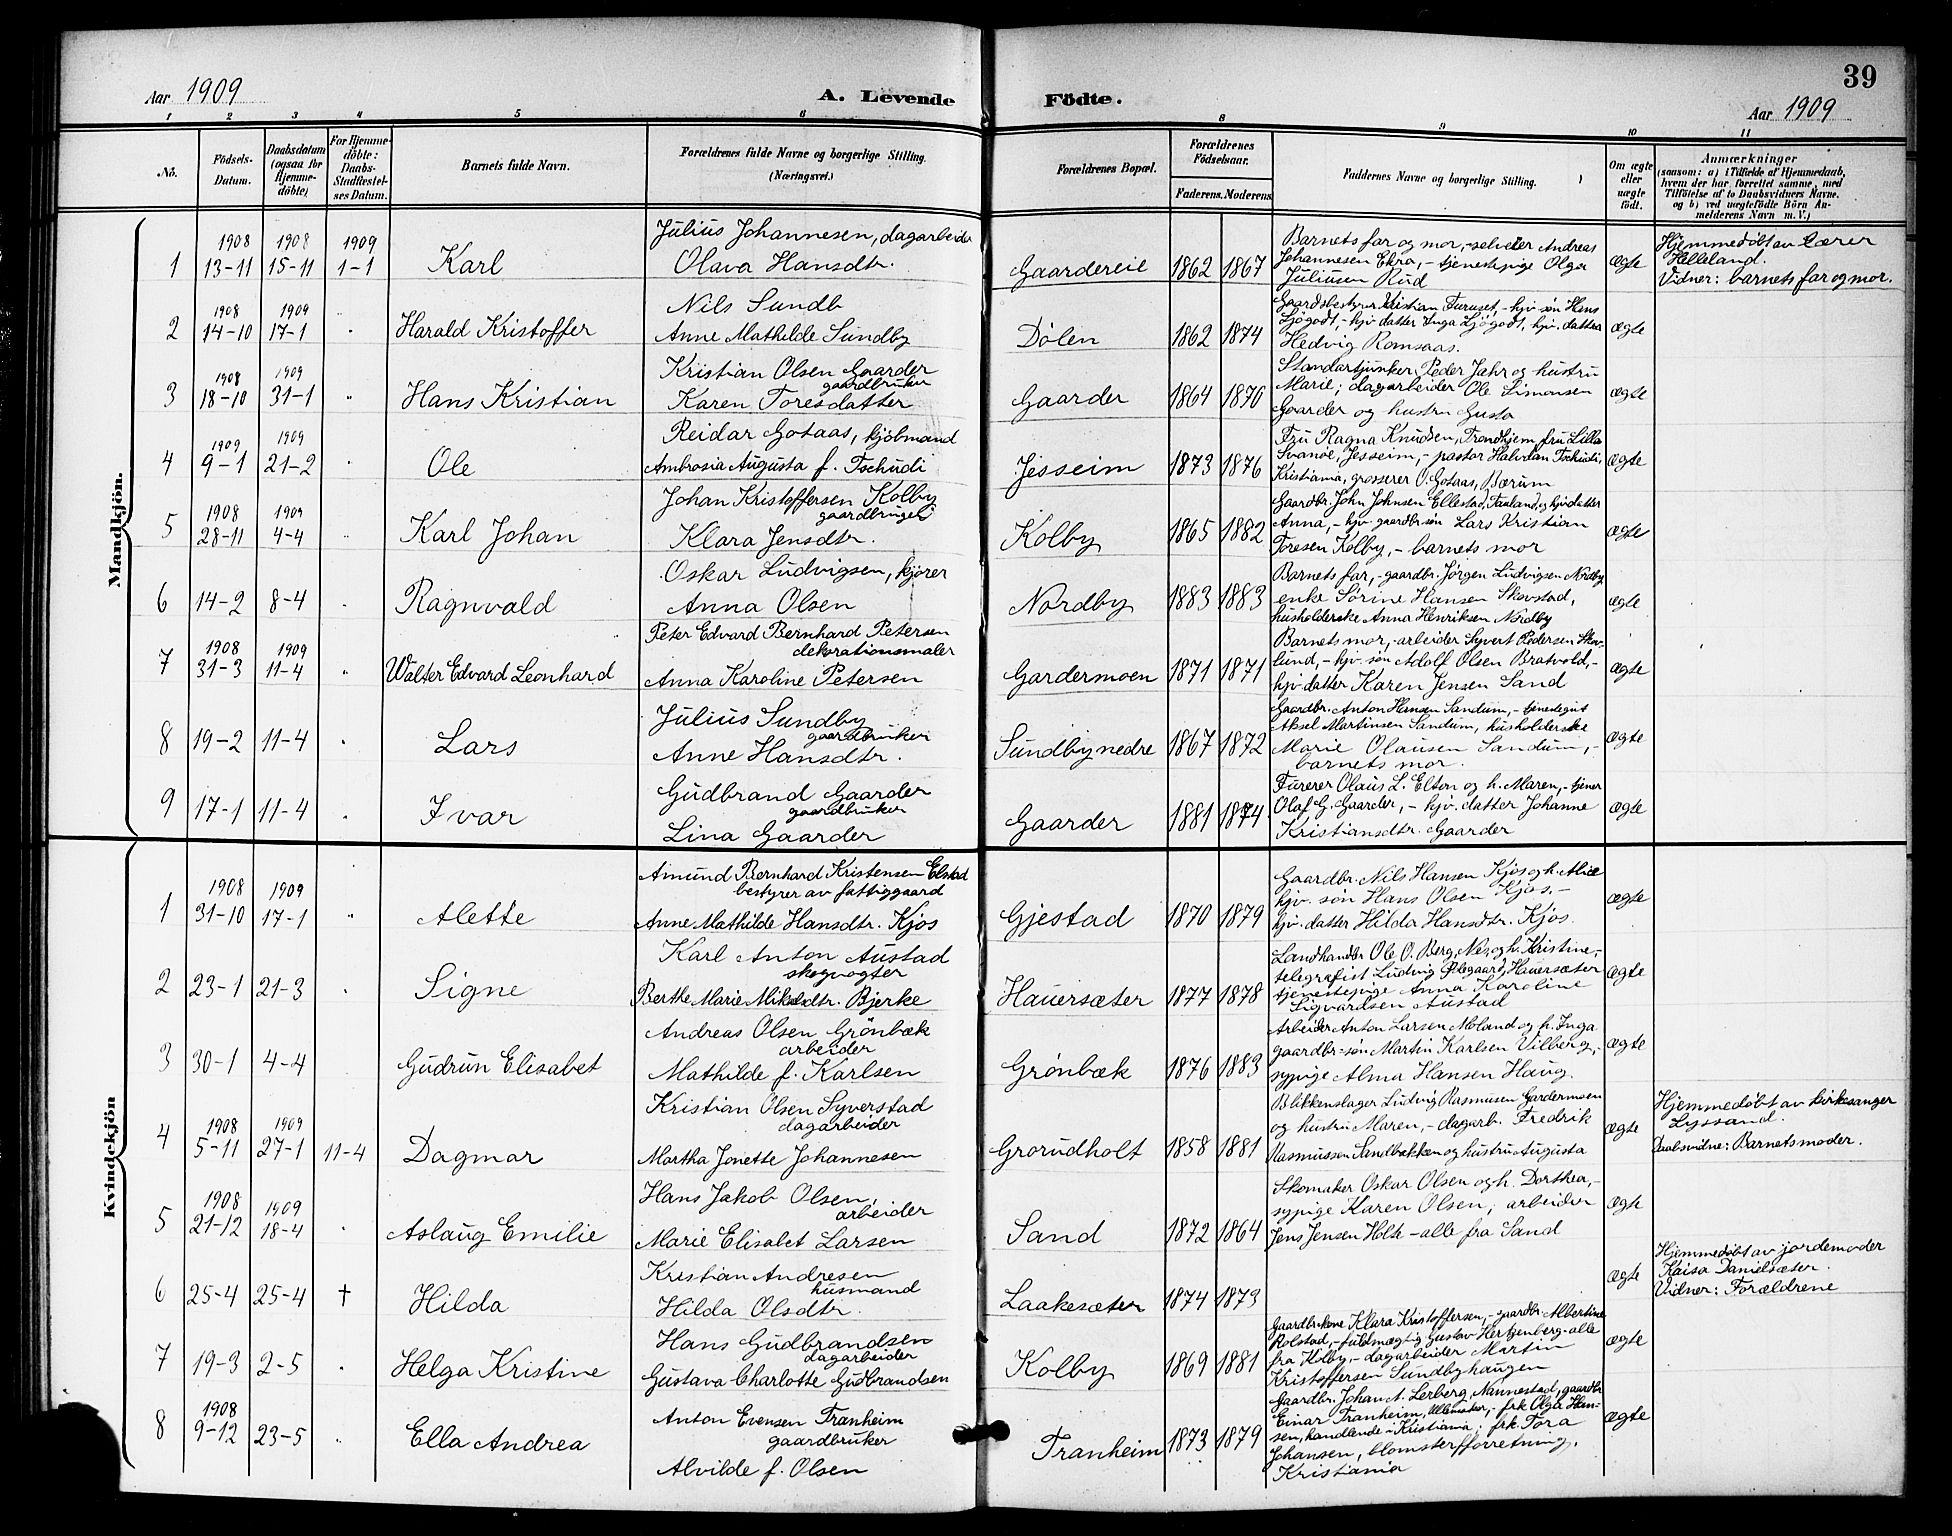 39
Aar 1909
A. Levende Födte.
Aar 1909
1 2 3 4 5 6 8 9 10 11
No.
Födsels-Datum.
Daabsdatum (ogsaa for Hjemme-döbte)
For Hjemme-döbte: Daabs-Stadfæstel-ses Datum.
Barnets fulde Navn.
Forældrenes fulde Navne og borgerlige Stilling. (Næringsvei.)
Forældrenes Bopæl.
Forældrenes Födselsaar.
Faderens. Moderens.
Faddernes Navne og borgerlige Stilling.
Om ægte eller uægte födt.
Anmærkninger
(saasom: a) i Tilfælde af Hjemmedaab, hvem der har forrettet samme, med Tilföielse af to Daabsvidners Navne. og b) ved uægtefödte Börn An-melderens Navn m. V.)
Mandkjön.
1 1908 13-11 1908 15-11 1909 1-1 Karl
Julius Johannesen, dagarbeider
Olava Hansdtr.
Gaardereie 1862 1867
Barnets far og mor, - selveier Andreas
Johannesen Ekra, - tjenestepige Olga
Juliusen Rud
ægte
Hjemmedøbt av Lærer
Helleland.
Vidner: barnets far og mor.
2 1908 14-10 1909 17-1 " Harald Kristoffer
Nils Sundb
Anne Mathilde Sundby
Dølen 1862 1874
Gaardsbestyrer Kristian Furuset, - hjv. søn Hans
Ljøgodt, - hjv. datter Inga Ljøgodt, hjv. datter
Hedvig Romsaas.
ægte
3 1908 18-10 1909 31-1 " Hans Kristian
Kristian Olsen Gaarder
gaardbruker
Karen Toresdatter
Gaarder 1864 1870
Standartjunker Peder Jahr og hustru
Marie; dagarbeider Ole Simonsen
Gaarder og hustru Gusta
ægte
4 1909 9-1 1909 21-2 " Ole
Reidar Gotaas, kjöbmand
Ambrosia Augusta f. Tschudi
Jesseim 1873 1876
Fru Ragna Knudsen, Trondhjem, fru Lilla
Svanöe, Jesseim, - pastor Halvdan Tschudi,
Kristiania, grosserer O. Gotaas, Bærum
ægte
5 1908 28-11 1909 4-4 " Karl Johan
Johan Kristoffersen Kolby
gaardbruger
Klara Jensdtr.
Kolby 1865 1882
Gaardbr. John Johnsen Ellestad, og hjv. datter
Anna, - hjv. gaardbr. søn Lars Kristian
Toresen Kolby, - barnets mor
ægte
6 14-2 8-4 " Ragnvald
Oskar Ludvigsen, kjører
Anna Olsen
Nordby 1883 1883
Barnets far, - gaardbr. Jørgen Ludvigsen Nordby
enke Sørine Hansen Skovstad,
husholderske Anna Henriksen Nordby
ægte
7 1908 31-3 1909 11-4 " Walter Edvard Leonhard
Peter Edvard Bernhard Petersen
dekorationsmaler
Anna Karoline Petersen
Gardermoen 1871 1871
Barnets mor, - arbeider Syvert Pedersen Skov-
lund, - hjv. søn Adolf Olsen Bratvold, -
hjv. datter Karen Jensen Sand
ægte
8 19-2 11-4 " Lars
Julius Sundby
gaardbruker
Anne Hansdtr.
Sundby nedre 1867 1872
Gaardbr. Anton Hansen Sandum, - tjenestegut
Aksel Martinsen Sandum, husholderske
Marie Olausen Sandum, -
barnets mor.
ægte
9 17-1 11-4 " Ivar
Gudbrand Gaarder
gaardbruker
Lina Gaarder
Gaarder 1881 1874
Furerer Olaus L. Elton og h. Maren, - tjener
Olaf G. Gaarder, - hjv. datter Johanne
Kristiansdtr. Gaarder
ægte
Kvindekjön
1 1908 31-10 1909 17-1 " Alette
Amund Bernhard Kristensen Elstad
bestyrer av fattiggaard
Anne Mathilde Hansdtr. Kjos
Gjestad 1870 1879
Gaardbr. Nils Hansen Kjos og h. Alice
hjv. søn Hans Olsen Kjos, -
hjv. datter Hilda Hansdtr. Kjos.
ægte
2 23-1 21-3 " Signe
Karl Anton Austad
skogvogter
Berthe Marie Mikaldtr. Bjerke
Hauersæter 1877 1878
Landhandler Ole O. Berg, Nes, og h. Kristine, -
telegrafist Ludvig Ølegaard, Hauersæter
tjenestepige Anna Karoline
Sigvardsen Austad
ægte
3 30-1 4-4 Gudrun Elisabet
Andreas Olsen Grönbæk
arbeider
Mathilde f. Karlsen
Grønbæk 1876 1883
Arbeider Anton Larsen Moland og h. Inga
gaardbr. søn Martin Karlsen Vilberg, -
sypige Alma Hansen Haug.
ægte
4 1908 5-11 1909 27-1 11-4 Dagmar
Kristian Olsen Syverstad
dagarbeider
Martha Jonette Johannesen
Grorudholt 1858 1881
Blikkenslager Ludvig Rasmusen Gardermoen
og hustru Maren, - dagarb. Fredrik
Rasmussen Sandbækken og hustru Augusta
ægte
Hjemmedøbt av kirkesanger
Lyssand.
Daabsvidne: Barnets moder.
5 1908 21-12 1909 18-4 " Aslaug Emilie
Hans Jakob Olsen,
arbeider
Marie Elisabet Larsen
Sand 1872 1864
Skomaker Oskar Olsen og h. Dorthea, -
sypige Karen Olsen; arbeider
Jens Jensen Holt - alle fra Sand
ægte
6 25-4 25-4 † Hilda
Kristian Andresen
husmand
Hilda Olsdtr.
Laakesæter 1874 1873
ægte
Hjemmedøbt av jordemoder
Kaisa Danielsæter.
Vidner: Forældrene
7 19-3 2-5 " Helga Kristine
Hans Gudbrandsen
dagarbeider
Gustava Charlotte Gudbrandsen
Kolby 1869 1881
Gaardbr.kone Klara Kristoffersen, - gaardbr. Albertine
Rolstad, - fuldmægtig Gustav Hertzenberg - alle
fra Kolby, - dagarbeider Martin
Kristoffersen Sundbyhaugen
ægte
8 1908 9-12 23-5 " Ella Andrea
Anton Evensen Tranheim
gaardbruker
Alvilde f. Olsen
Tranheim 1873 1879
Gaardbr. Johan A. Lerberg, Nannestad, gaardbr.
Einar Tranheim, Ullensaker, - frk Olga Han-
sen, handlende i Kristiania; frk. Tora
Johansen, blomsterforretning,
Kristiania
ægte